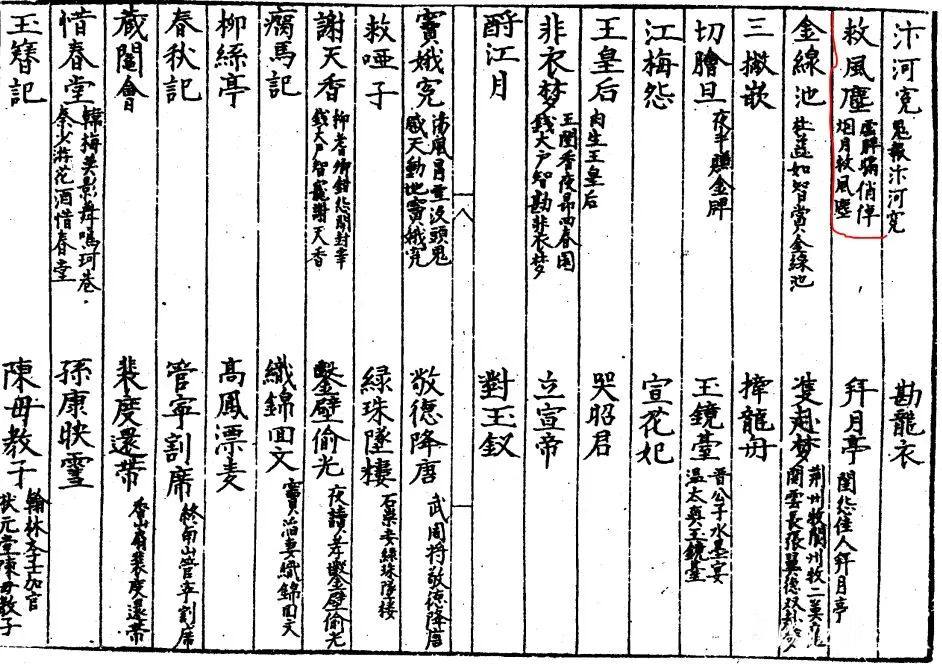 汴河寃
鬼報汴河寃
勘龍衣
救風塵
虛脾瞞俏倬
烟月救風塵
拜月亭
閨怨佳人拜月亭
金線池
杜蕊如智賞金線池
雙赴梦
荆州牧閬州牧二英
関雲長張翼德双赴梦
三撇嵌
摔龍舟
切鱠旦
夜半賺金牌
玉鏡臺
晋公子水墨宴
溫太真玉鏡臺
江梅怨
宣花妃
王皇后
肉生王皇后
哭昭君
非衣梦
王閏香夜鬧四春园
錢大尹智勘非衣梦
立宣帝
酹江月
對玉釵
八
竇娥寃
湯風冒雪沒頭鬼
感天動地竇娥寃
敬德降唐
武周將敬德降唐
救啞子
緑珠墜樓
石崇妾緑珠墜樓
謝天香
柳耆卿開封
錢大尹智寵謝天香
鑿壁偷光
夜讀鑿壁偷光
瘸馬記
織錦回文
竇滔妻織錦回文
柳絲亭
高鳳漂麦
春秋記
管寧割席
終南山管寧割席
藏鬮會
裴度還帶
香山扇裴度還帶
惜春堂
韓梅英影舞鳴珂巷
秦少游花酒惜春堂
孫康映雪
玉簪記
陳母教子
翰林李士加官
狀元堂陳母教子